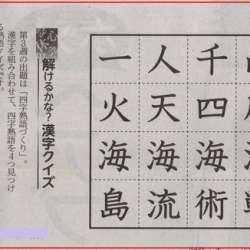 一人千
火天四
海海海
島流術
解けるかな？漢字クイズ
第3週の出題は「四字熟語づくり」。
漢字を組み合わせて、四字熟語を4つ見つけ